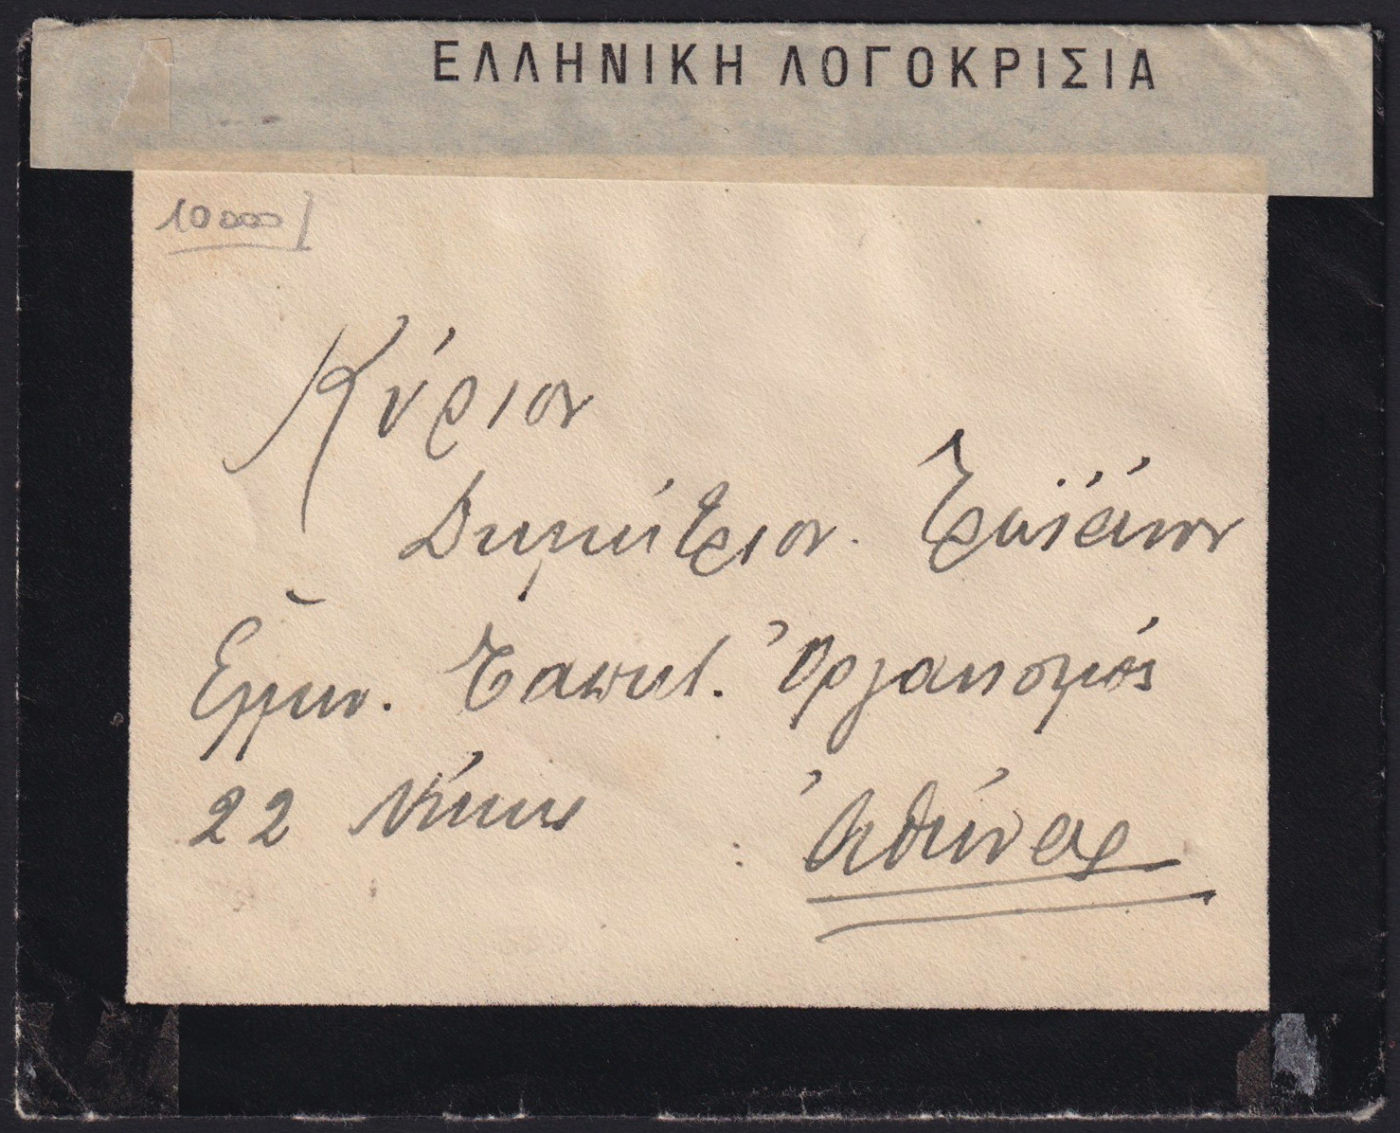 ΕΛΛΗΝΙΚΗ ΛΟΓΟΚΡΙΣΙΑ
10000
Κύριον
Δημήτριον Τραϊάνον
Ἑλλην. Ταπητ. Ὀργανισμός
22 Νίκης
Ἀθήνας